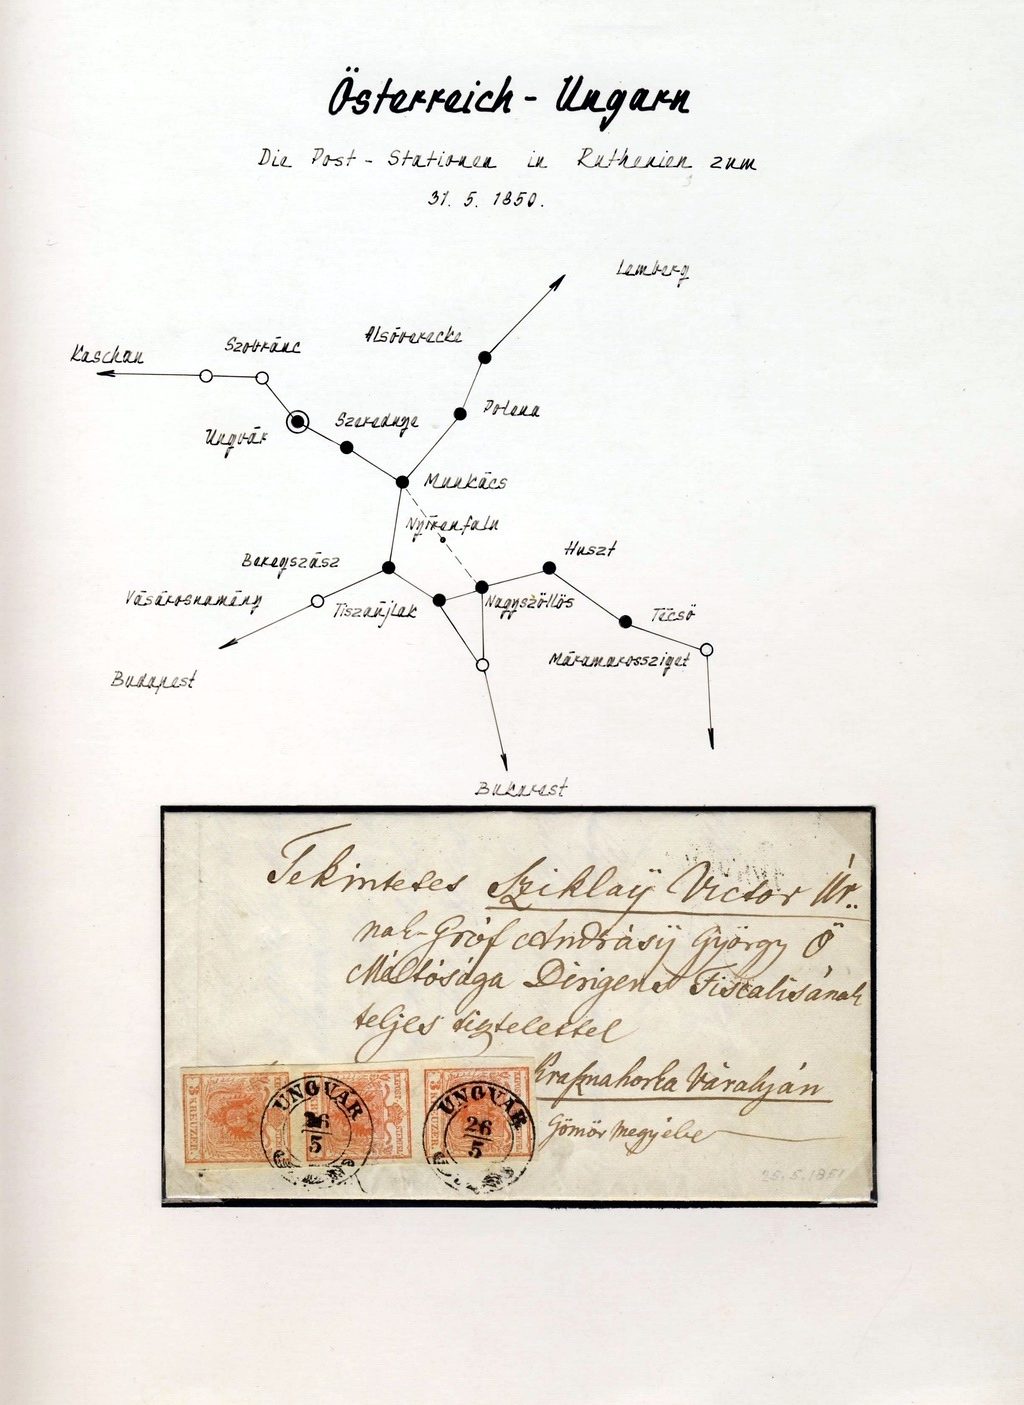 Österreich - Ungarn
Die Post - Stationen in Ruthenien zum
31. 5. 1850.
Lemberg
Alsóverecke
Szobránc
Kaschau
Polena
Szerednye
Ungvár
Munkács
Nyírenfalu
Huszt
Beregszász
Vásárosnamény
Tiszaújlak
Nagyszöllös
Técsö
Máramarossziget
Budapest
Bukarest
Tekintetes Sziklaÿ Victor Úr..
nak Gróf Andrásÿ György Ö
Máltósága Dirigens Fiscalisának
teljes tisztelettel
Krasznahorka Váralyán
Gömör Megyébe
25.5.1851
UNGVÁR
26
5
UNGVÁR
26
5
3 KREUZER
3 KREUZER